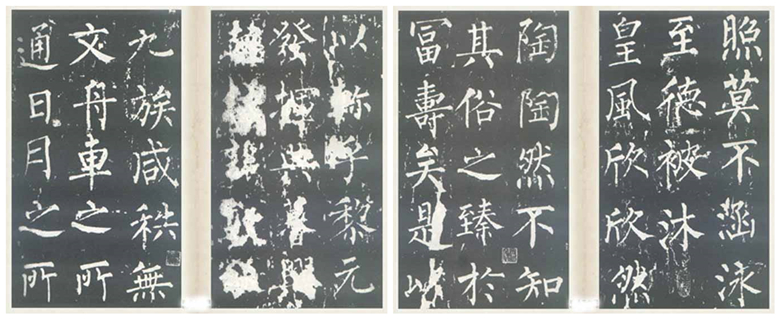 以乎黎元
發揮典謩
九族咸秩無
文舟車之所
通日月之所
照莫不涵泳
至德被沐
皇風欣欣然
陶陶然不知
其俗之臻於
冨壽矣是以